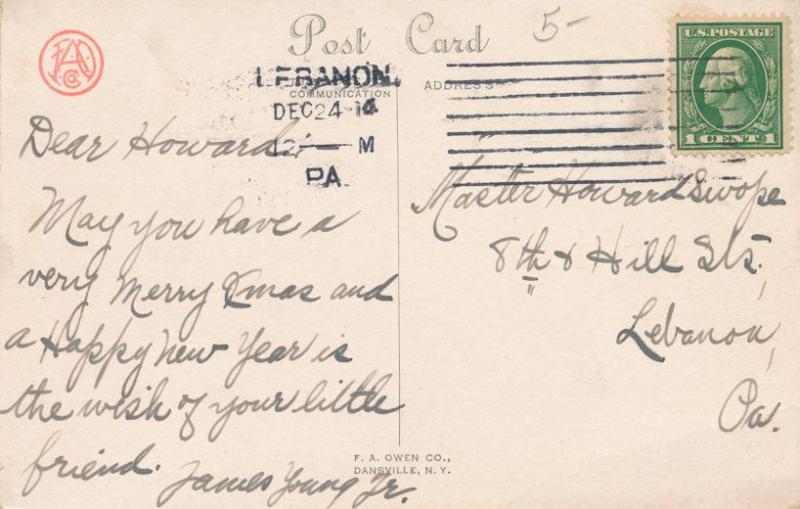 Post Card
5-
U.S. POSTAGE
1 CENT 1
LEBANON.
DEC 24-14
12— M
PA
COMMUNICATION
ADDRESS
Dear Howard.
May you have a
very merry Xmas and
a Happy New Year is
the wish of your little
friend.
James Young Jr.
Master Howard Swope
8th & Hill Sts.,
Lebanon,
Pa.
F. A. OWEN CO.,
DANSVILLE, N. Y.